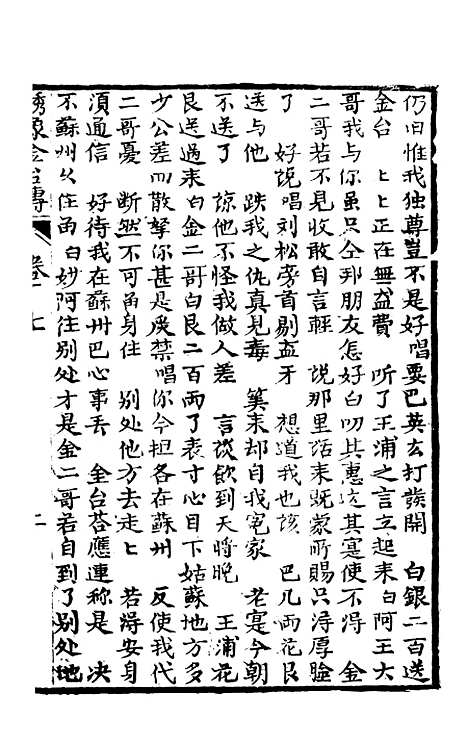 仍旧惟我独尊豈不是好唱要巴英玄打發開　白銀二百送
金台　匕匕正在無益費　听了王浦之言立起来白阿王大
哥我与你虽只仝邦朋友怎好白叨其惠这其寔使不得　金
二哥若不見收敢自言輕　說那里话来既蒙所賜只淂厚臉
了　好說唱刘松旁首剔盃牙　想道我也该　巴几両花艮
送与他　跌我之仇真見毒　算来却自我冤家　老寔今朝
不送了　諒他不怪我做人差　言谈飲到天将晚　王浦花
艮送過来白金二哥白艮二百両了表寸心目下姑蘇地方多
少公差四散拏你甚是嚴禁唱你今担各在蘇州　反使我代
二哥憂　断然不可甬身住　别处他方去走匕　若淂安身
須通信　好待我在蘇州巴心事丢　金台荅應連称是　决
不蘇州乆住甬白妙阿往别处才是金二哥若自到了别处地
繡像金台傳　卷十七　二